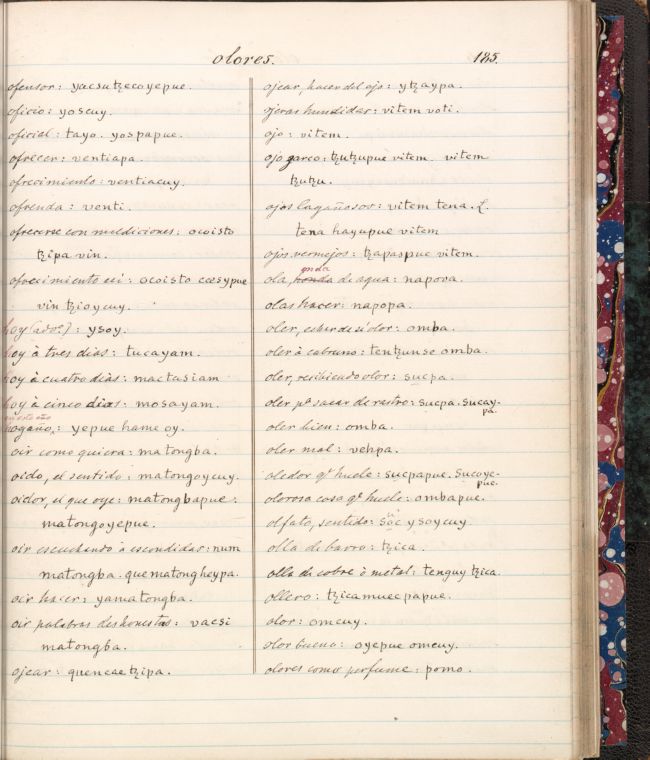 olores.
185.
ofensor: yacsutzecoyepue.
oficio: yoscuy.
oficial: tayo. yospapue.
ofrecer: ventiapa.
ofrecimiento: ventiacuy.
ofrenda: venti.
ofrecerse con maldiciones: ocoisto
tzipa vin.
ofrecimiento así: ocoisto cœsypue
vin tzioycuy.
hoy (advo.): ysoy.
hoy à tres dias: tucayam.
hoy à cuatro dias: mactasiam
hoy à cinco dias: mosayam.
en este año
hogaño: yepue hame oy.
oir como quiera: matongba.
oido, el sentido: matongoycuy.
oidor, el que oye: matongbapue.
matongoyepue.
oir escuchando à escondidas: num
matongba. quematongheypa.
oir hacer: yamatongba.
oir palabras deshonestas: vacsi
matongba.
ojear: quencaetzipa.
ojear, hacer del ojo: ytzaypa.
ojeras hundidas: vitem voti.
ojo: vitem.
ojo garco: tzutzupue vitem. vitem
tzutzu.
ojos lagañosos: vitem tena. l.
tena hayupue vitem
ojos vermejos: tzapaspue vitem.
onda
ola, honda de agua: napova.
olas hacer: napopa.
oler, echar de si olor: omba.
oler à cabruno: tentzunse omba.
oler, recibiendo olor: sucpa.
oler pa. sacar de rastro: sucpa. sucay-
pa.
oler bien: omba.
oler mal: vehpa.
oledor qe. huele: sucpapue. sucoye-
pue.
olorosa cosa qe. huele: ombapue.
olfato, sentido: soc ysoycuy
olla de barro: tzica.
olla de cobre ò metal: tenguy tzica.
ollero: tzicamuecpapue.
olor: omcuy.
olor bueno: oyepue omcuy.
olores como perfume: pomo.